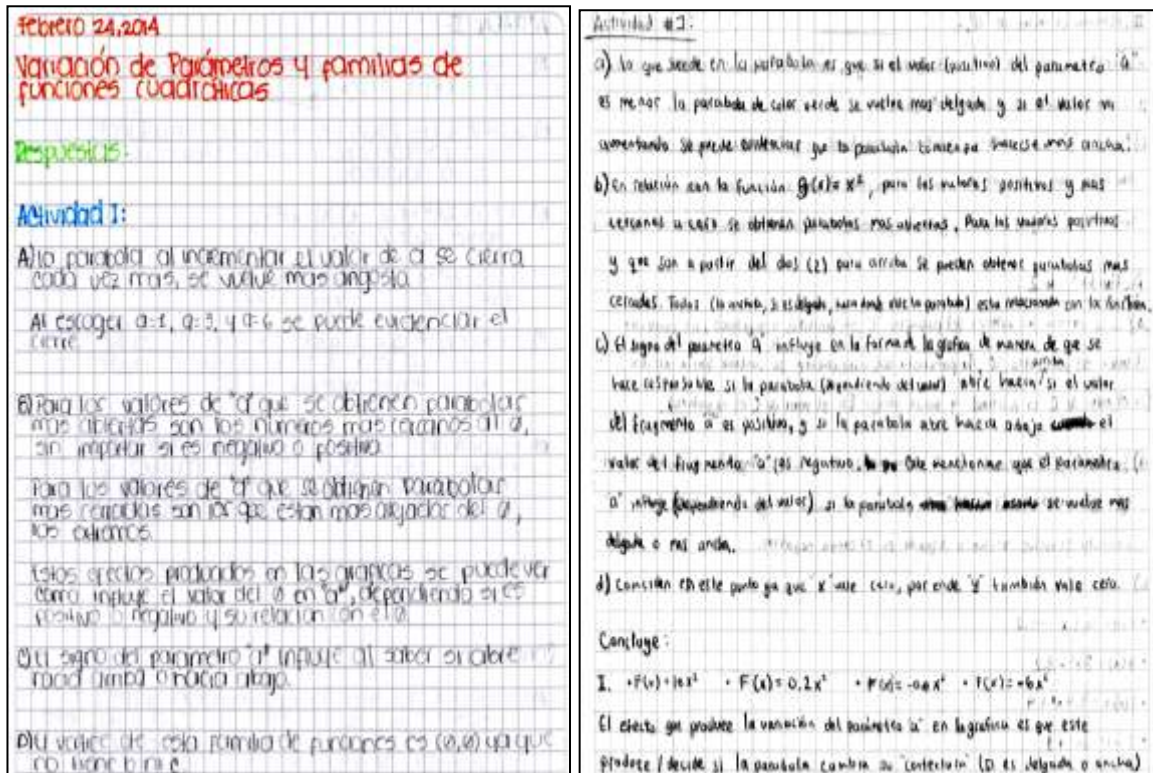 Febrero 24, 2014
Variación de Parámetros y familias de
funciones cuadráticas
Respuestas:
Actividad I:
A) la parabola al incrementar el valor de a se cierra
cada vez mas, se vuelve mas angosta.
Al escoger a=1, a=3, y a=6 se puede evidenciar el
cierre.
B) Para los valores de "a" que se obtienen parabolas
mas abiertas son los números mas cercanos al 0,
sin importar si es negativo o positivo.
Para los valores de "a" que se obtienen parabolas
mas cerradas son los que estan mas alejados del 0,
los extremos.
Estos efectos producidos en las graficas se puede ver
como influye el valor del 0 en "a", dependiendo si es
positivo o negativo y su relacion con el 0.
C) El signo del parametro "a" influye al saber si abre
hacia arriba o hacia abajo.
D) El vertice de esta familia de funciones es (0,0) ya que
no tiene b ni c.
Actividad #1:
a) lo que sucede en la parabola es que si el valor (positivo) del parametro "a"
es menor la parabola de color verde se vuelve mas delgada y si el valor va
aumentando se puede evidenciar que la parabola comienza hacerse mas ancha.
b) En relación con la función g(x) = x², para los valores positivos y mas
cercanos a cero se obtienen parabolas mas abiertas. Para los valores positivos
y que son a partir del dos (2) para arriba se pueden obtener parabolas mas
cerradas. Todos (lo ancha, si es delgada, hacia donde la parabola) esta relacionado con la función.
c) El signo del parametro "a" influye en la forma de la grafica de manera de que se
hace responsable si la parabola (dependiendo del valor) abre hacia arriba si el valor
del fragmento "a" es positivo, y si la parabola abre hacia abajo el
valor del fragmento "a" es negativo. Cabe mencionar que el parametro
"a" influye (dependiendo del valor) si la parabola se vuelve mas
delgada o mas ancha.
d) Coinciden en este punto ya que "x" vale cero, por ende "y" también vale cero.
Concluye:
I. • F(x) = 10x² • F(x) = 0,2x² • F(x) = -0.6x² • F(x) = -6x²
El efecto que produce la variación del parámetro "a" en la grafica es que este
produce / decide si la parabola cambia su "contextura" (si es delgada o ancha)